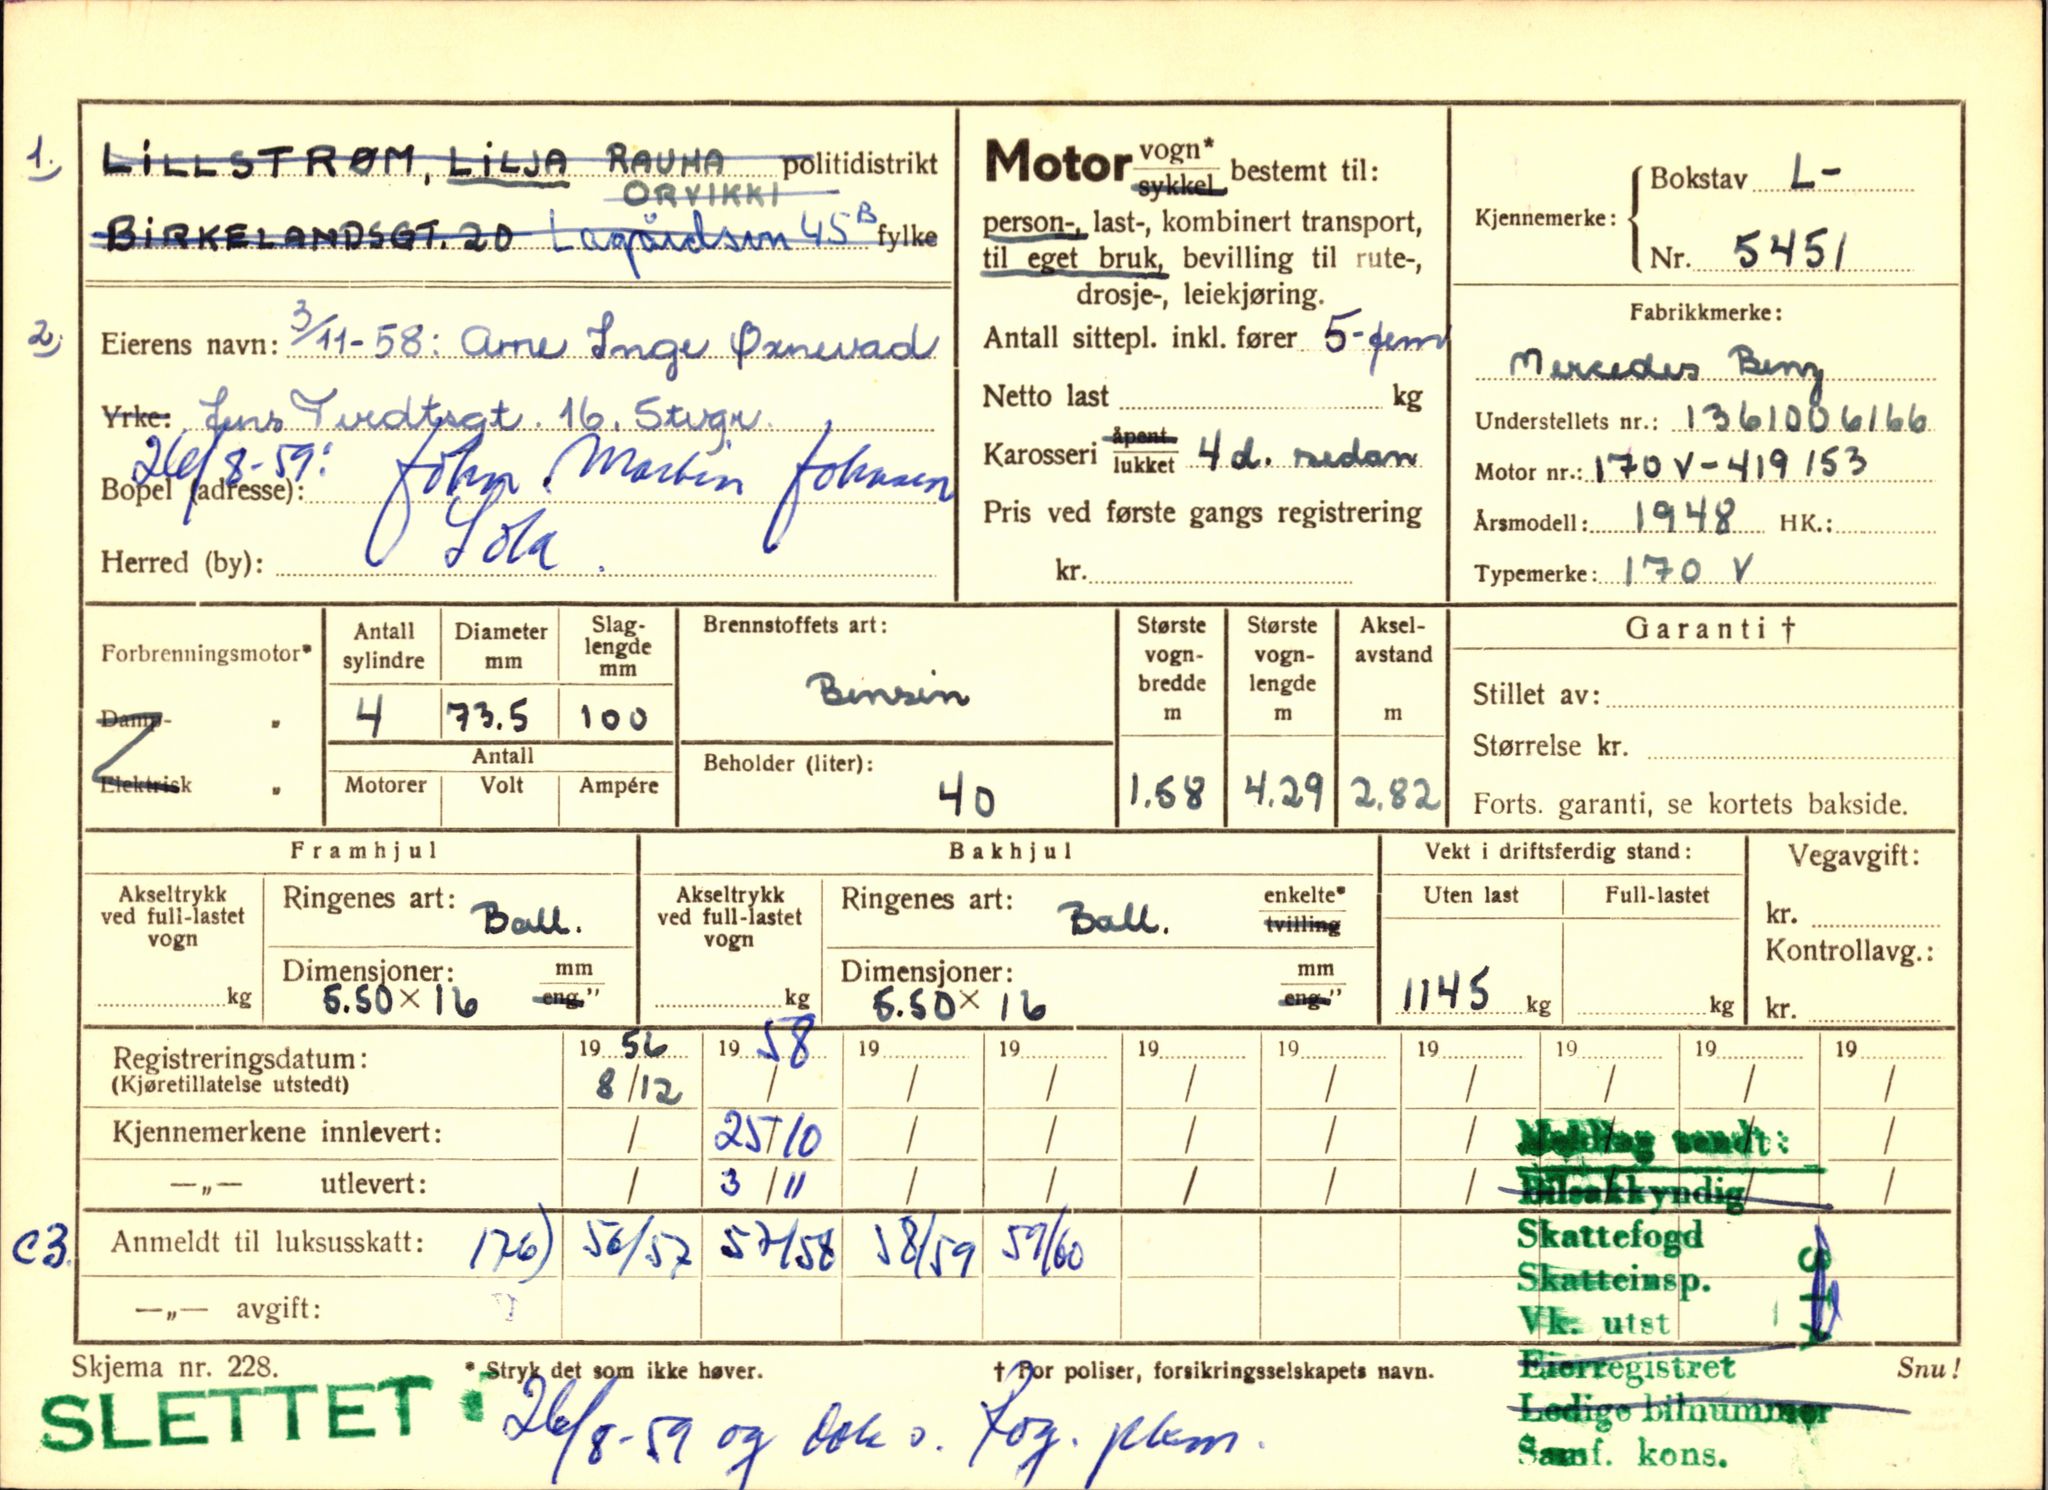 1. LILLSTRØM, LILJA RAUHA politidistrikt
ORVIKKI
BIRKELANDSGT. 20 Lagårdsvn 45B fylke
2. Eierens navn: 3/11-58: Arne Inge Øxnevad
Yrke: Jens Tvedtsgt. 16. Stvgr.
26/8-59: John Martin Johnsen
Bopel (adresse):
Sola
Herred (by):
Motor vogn* sykkel bestemt til:
person-, last-, kombinert transport,
til eget bruk, bevilling til rute-,
drosje-, leiekjøring.
Antall sittepl. inkl. fører 5-fem
Netto last kg
Karosseri åpent lukket 4 d. sedan
Pris ved første gangs registrering
kr.
Kjennemerke: Bokstav L-
Nr. 5451
Fabrikkmerke:
Mercedes Benz
Understellets nr.: 1361006166
Motor nr.: 170 V-419153
Årsmodell: 1948 HK.:
Typemerke: 170 V
Forbrenningsmotor*
Damp- "
Elektrisk "
Antall sylindre
Diameter mm
Slag-lengde mm
4 73.5 100
Antall
Motorer Volt Ampére
Brennstoffets art:
Bensin
Beholder (liter):
40
Største vogn-bredde m
Største vogn-lengde m
Aksel-avstand m
1.58 4.29 2.82
Garanti †
Stillet av:
Størrelse kr.
Forts. garanti, se kortets bakside.
Framhjul
Akseltrykk ved full-lastet vogn
kg
Ringenes art: Ball.
Dimensjoner: mm eng."
5.50 × 16
Bakhjul
Akseltrykk ved full-lastet vogn
kg
Ringenes art: Ball. enkelte* tvilling
Dimensjoner: mm eng."
5.50 × 16
Vekt i driftsferdig stand:
Uten last Full-lastet
1145 kg kg
Vegavgift:
kr.
Kontrollavg.:
kr.
Registreringsdatum: 19 56 19 58 19 19 19 19 19 19 19 19
(Kjøretillatelse utstedt) 8/12 / / / / / / / / /
Kjennemerkene innlevert: / 25/10 / / / / / / / /
—„— utlevert: / 3/11 / / / / / / / /
c3. Anmeldt til luksusskatt: 176) 56/57 57/58 58/59 59/60
—„— avgift:
Melding sendt:
Bilsakkyndig
Skattefogd
Skatteinsp.
Vk. utst
Eierregistret
Ledige bilnummer
Samf. kons.
Skjema nr. 228. * Stryk det som ikke høver. † For poliser, forsikringsselskapets navn. Snu!
SLETTET: 26/8-59 og dok s. Rog. pkm.